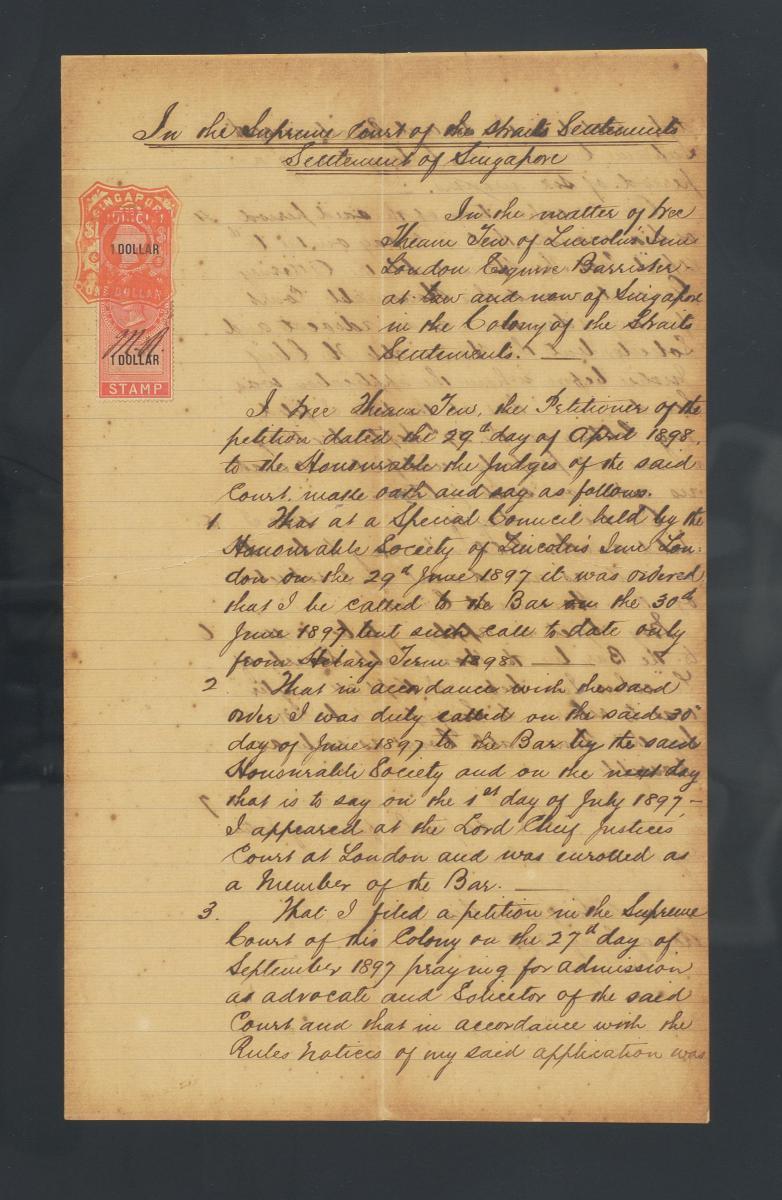 In the Supreme Court of the Straits Settlements
Settlement of Singapore
SINGAPORE
JUDICIAL
$1
1 DOLLAR
ONE DOLLAR
1 DOLLAR
STAMP
In the matter of
Theam Tew of Lincoln's Inn
London Esquire Barrister
at law and now of Singapore
in the Colony of the Straits
Settlements.
I Theam Tew, the Petitioner of the
petition dated the 29th day of April 1898,
to the Honourable the Judges of the said
Court, make oath and say as follows.
1. That at a Special Council held by the
Honourable Society of Lincoln's Inn Lon-
don on the 29th June 1897 it was ordered
that I be called to the Bar on the 30th
June 1897 but such call to date only
from Hilary Term 1898
2. That in accordance with the said
order I was duly called on the said 30th
day of June 1897 to the Bar by the said
Honourable Society and on the next day
that is to say on the 1st day of July 1897,-
I appeared at the Lord Chief Justices
Court at London and was enrolled as
a Member of the Bar.
3. That I filed a petition in the Supreme
Court of this Colony on the 27th day of
September 1897 praying for admission
as advocate and Solicitor of the said
Court and that in accordance with the
Rules notices of my said application was